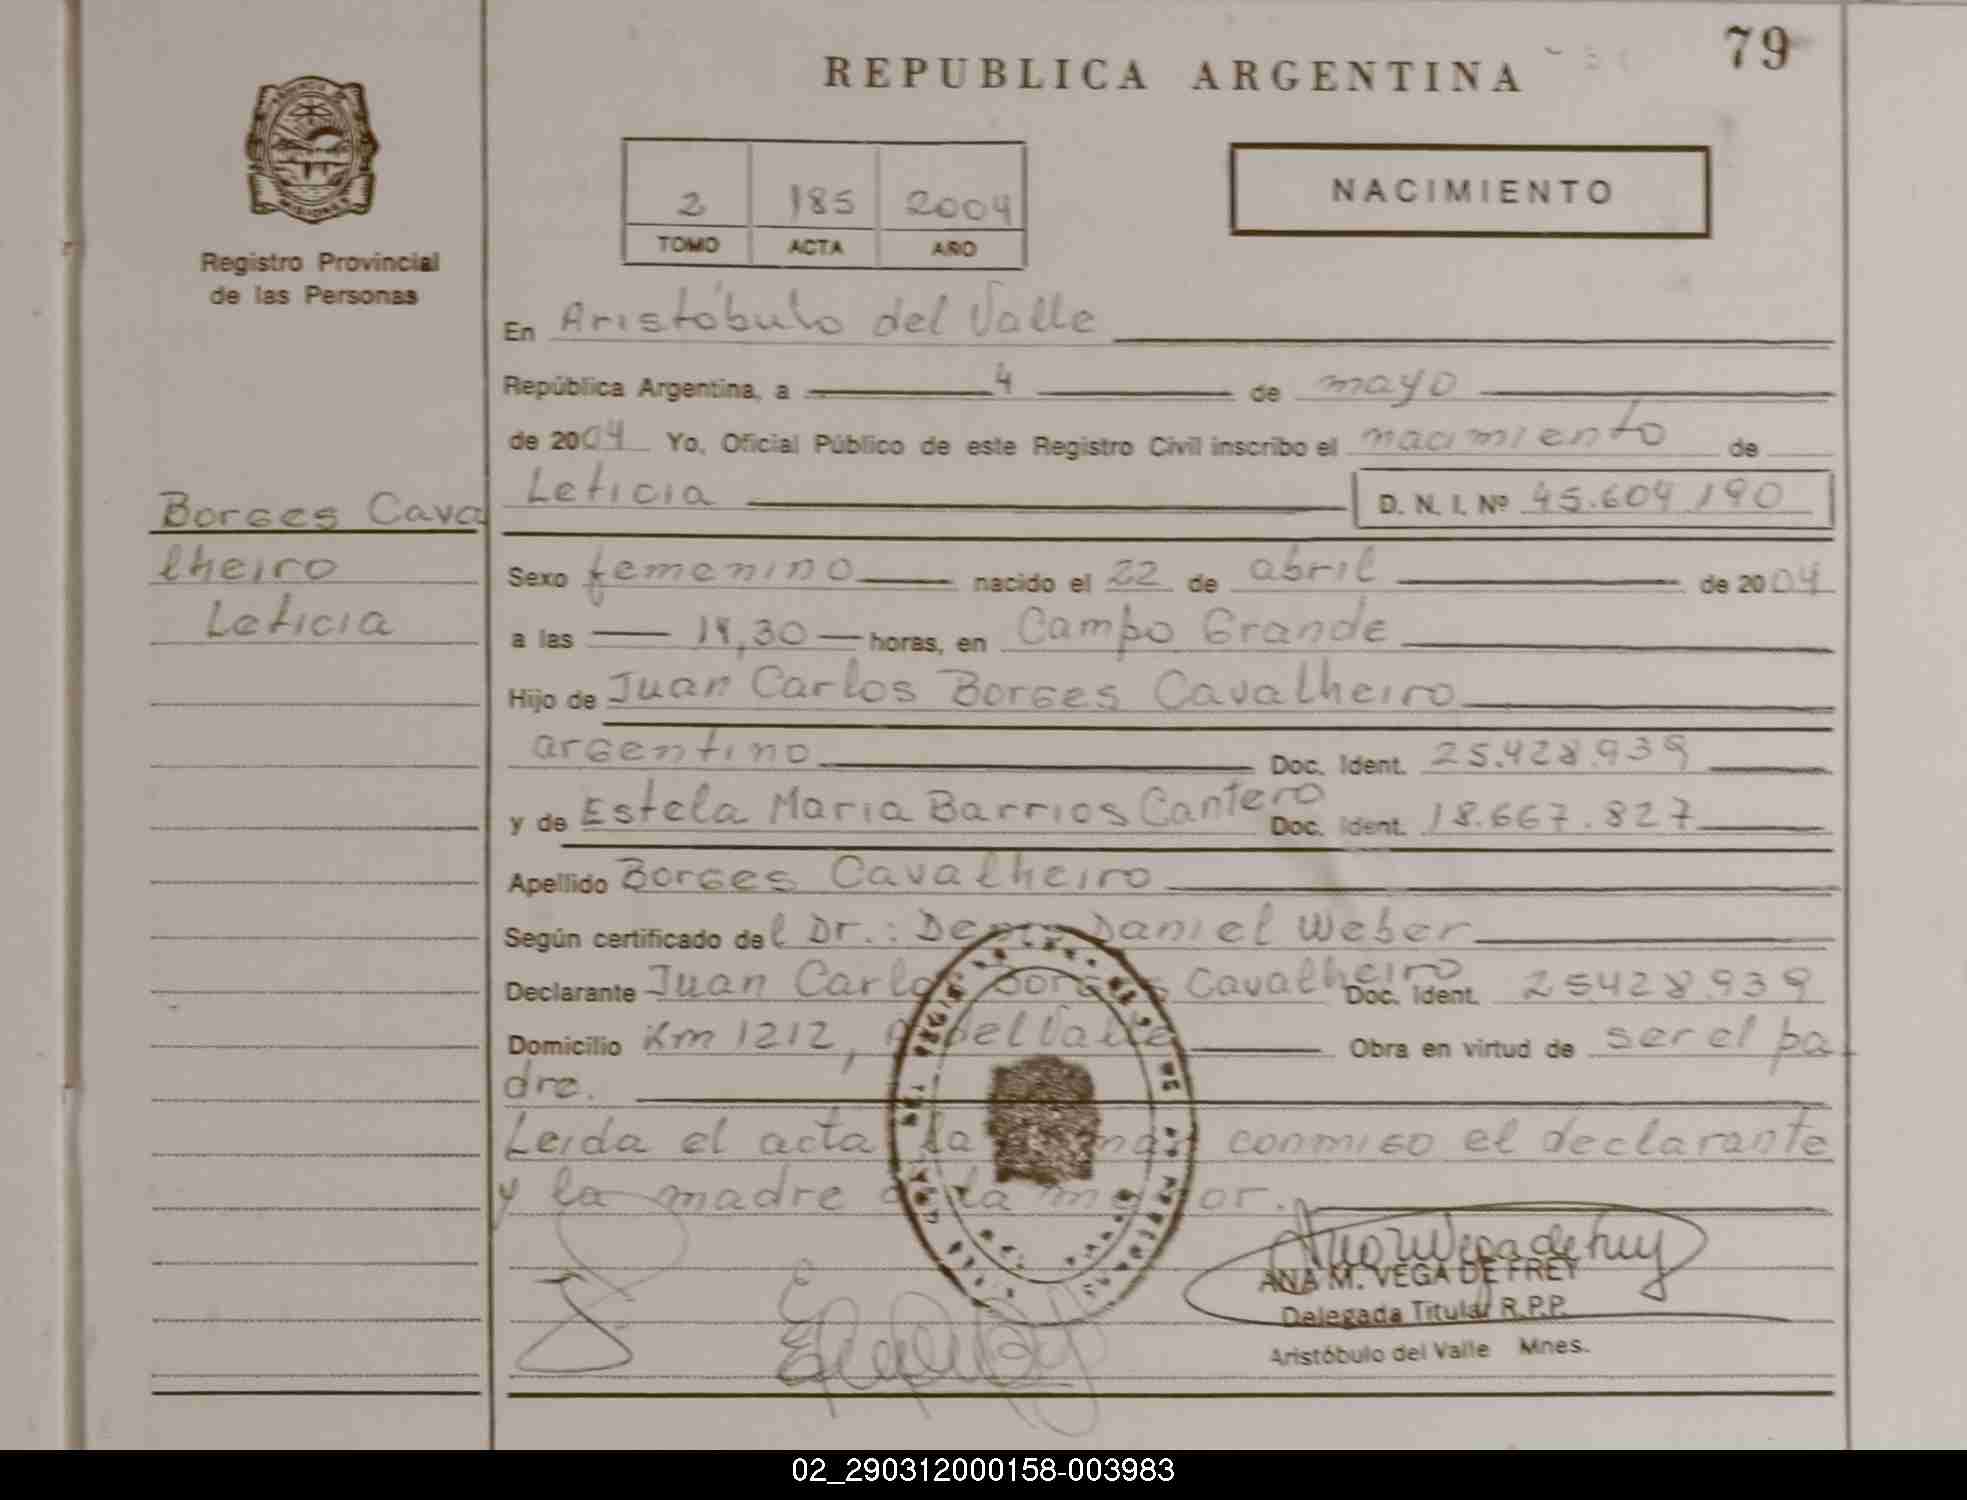 79
REPUBLICA ARGENTINA
NACIMIENTO
2 185 2004
TOMO ACTA AÑO
MISIONES
Registro Provincial
de las Personas
Borges Cava
lheiro
Leticia
En Aristóbulo del Valle
República Argentina, a 4 de mayo
de 2004 Yo, Oficial Público de este Registro Civil inscribo el nacimiento de
Leticia D. N. I. Nº 45.604.190
Sexo femenino nacido el 22 de abril de 2004
a las horas, en Campo Grande
Hijo de Juan Carlos Borges Cavalheiro
argentino Doc. Ident. 25.428.939
y de Estela Maria Barrios Cantero Doc. Ident. 18.667.827
Apellido Borges Cavalheiro
Según certificado del Dr.: Daniel Weber
Declarante Juan Carlos Borges Cavalheiro Doc. Ident. 25.428.939
Domicilio Km 1212, A. del Valle Obra en virtud de ser el pa
dre.
Leida el acta la conmigo el declarante
y la madre de la menor.
ANA M. VEGA DE FREY
Delegada Titular R.P.P.
Aristóbulo del Valle Mnes.
02_290312000158-003983